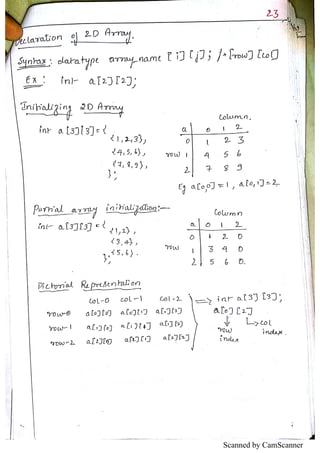 23
Declaration of 2D Array.
Syntax : datatype array_name [i] [j]; /*[row] [col]
Ex : int a[2][2];
Initializing 2D Array
int a[3][3]={
{1,2,3},
{4,5,6},
{7,8,9},
};
Column.
a 0 1 2
0 1 2 3
row 1 4 5 6
2 7 8 9
Eg a[0,0]=1, a[0,1]=2
Partial array initialization:—
int a[3][3]={
{1,2},
{3,4},
{5,6}.
};
Column
a 0 1 2
0 1 2 0
row 1 3 4 0
2 5 6 0.
Pictorial Representation
col-0 col-1 col-2
row-0 a[0][0] a[0][1] a[0][2]
row-1 a[1][0] a[1][1] a[1][2]
row-2 a[2][0] a[2][1] a[2][2]
=> int a[3][3];
a[0][2]
row index
col index.
Scanned by CamScanner